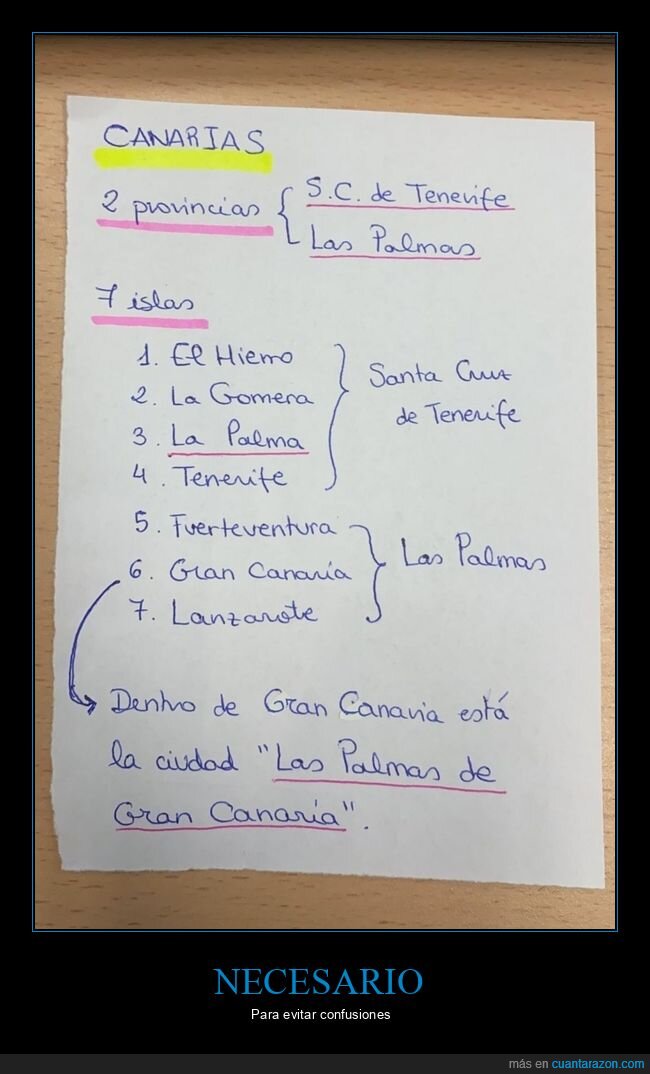 CANARIAS
2 provincias { S.C. de Tenerife
Las Palmas
7 islas
1. El Hierro
2. La Gomera
3. La Palma
4. Tenerife
Santa Cruz
de Tenerife
5. Fuerteventura
6. Gran Canaria
7. Lanzarote
Las Palmas
Dentro de Gran Canaria está
la ciudad "Las Palmas de
Gran Canaria".
NECESARIO
Para evitar confusiones
más en cuantarazon.com